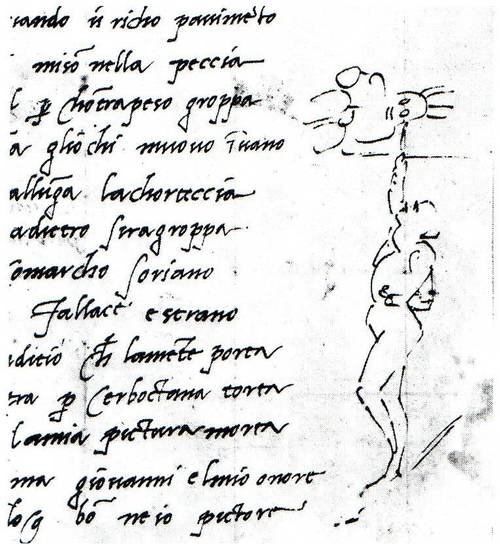 ando ũ richo pavimẽto
misõ nella peccia
l p̱ chõtrapeso groppa
ã gliõchi muovo ĩvano
allũga lachorteccia
adietro siragroppa
õmarcho soriano
fallacẽ e strano
iditio ch̃ lamẽte porta
tra p̱ cerboctana torta
lamia pictura morta
ma giovanni elmio onore
bõ ne io pictore